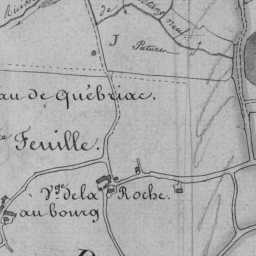 de
J
Patures
au de Québriac.
Feuille.
V.ge de la Roche.
au bourg